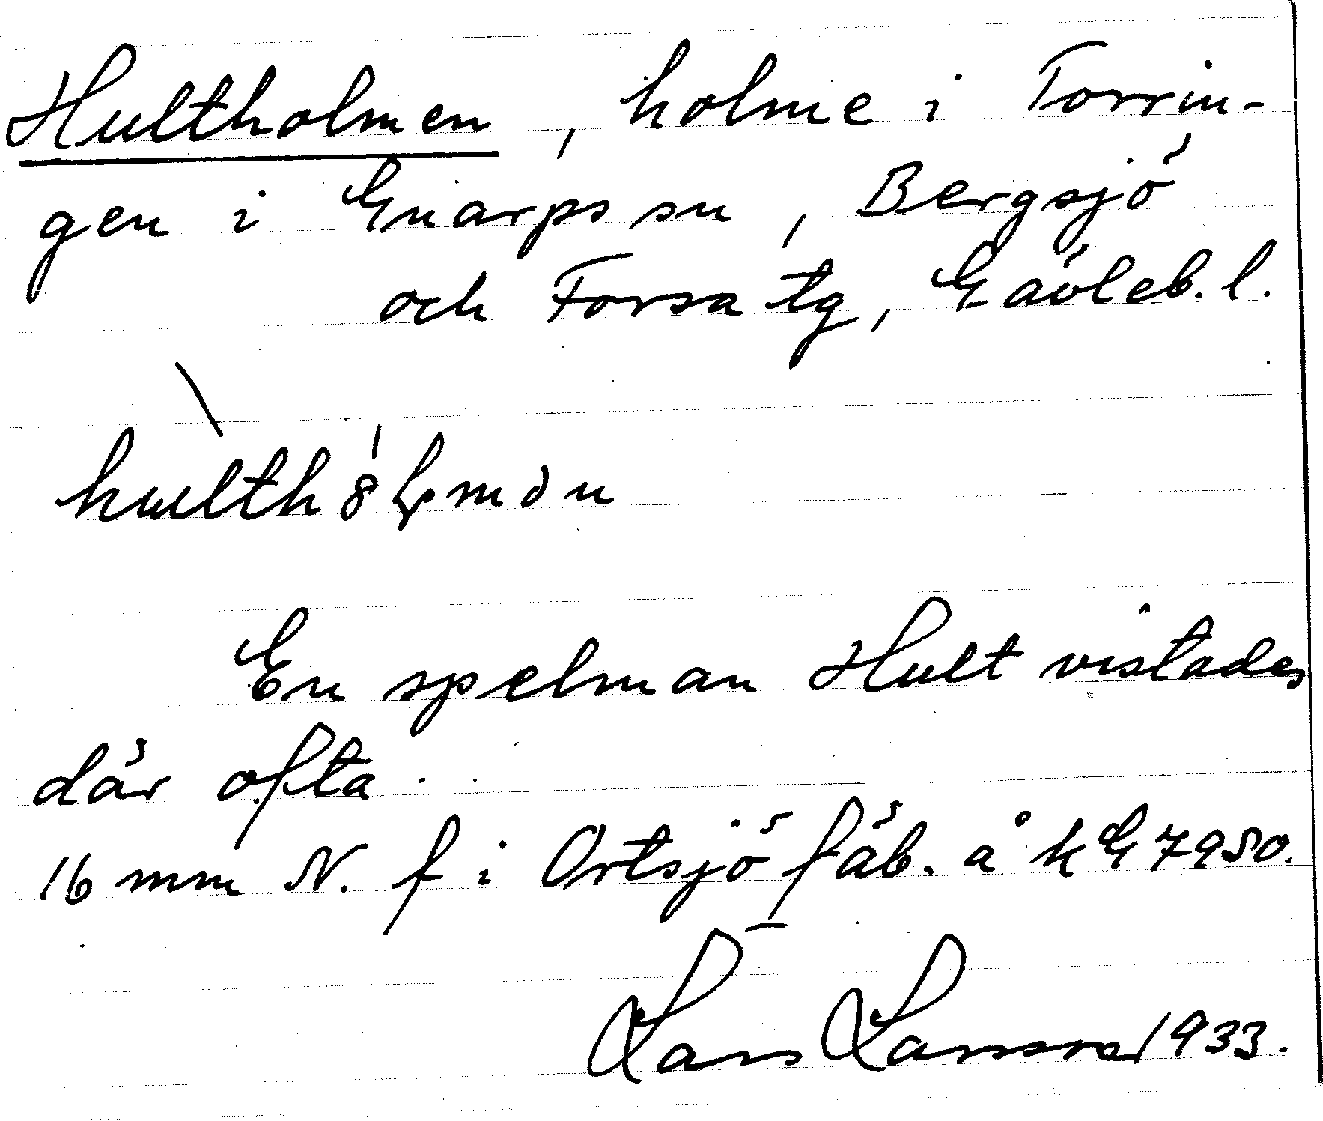 Hultholmen, holme i Torrin-
gen i Gnarps sn, Bergsjö
och Forsa tg, Gävleb. l.
En spelman Hult vistades
där ofta.
16 mm N. f i Ortsjö fäb. å kG 7950.
Lars Larsson 1933.